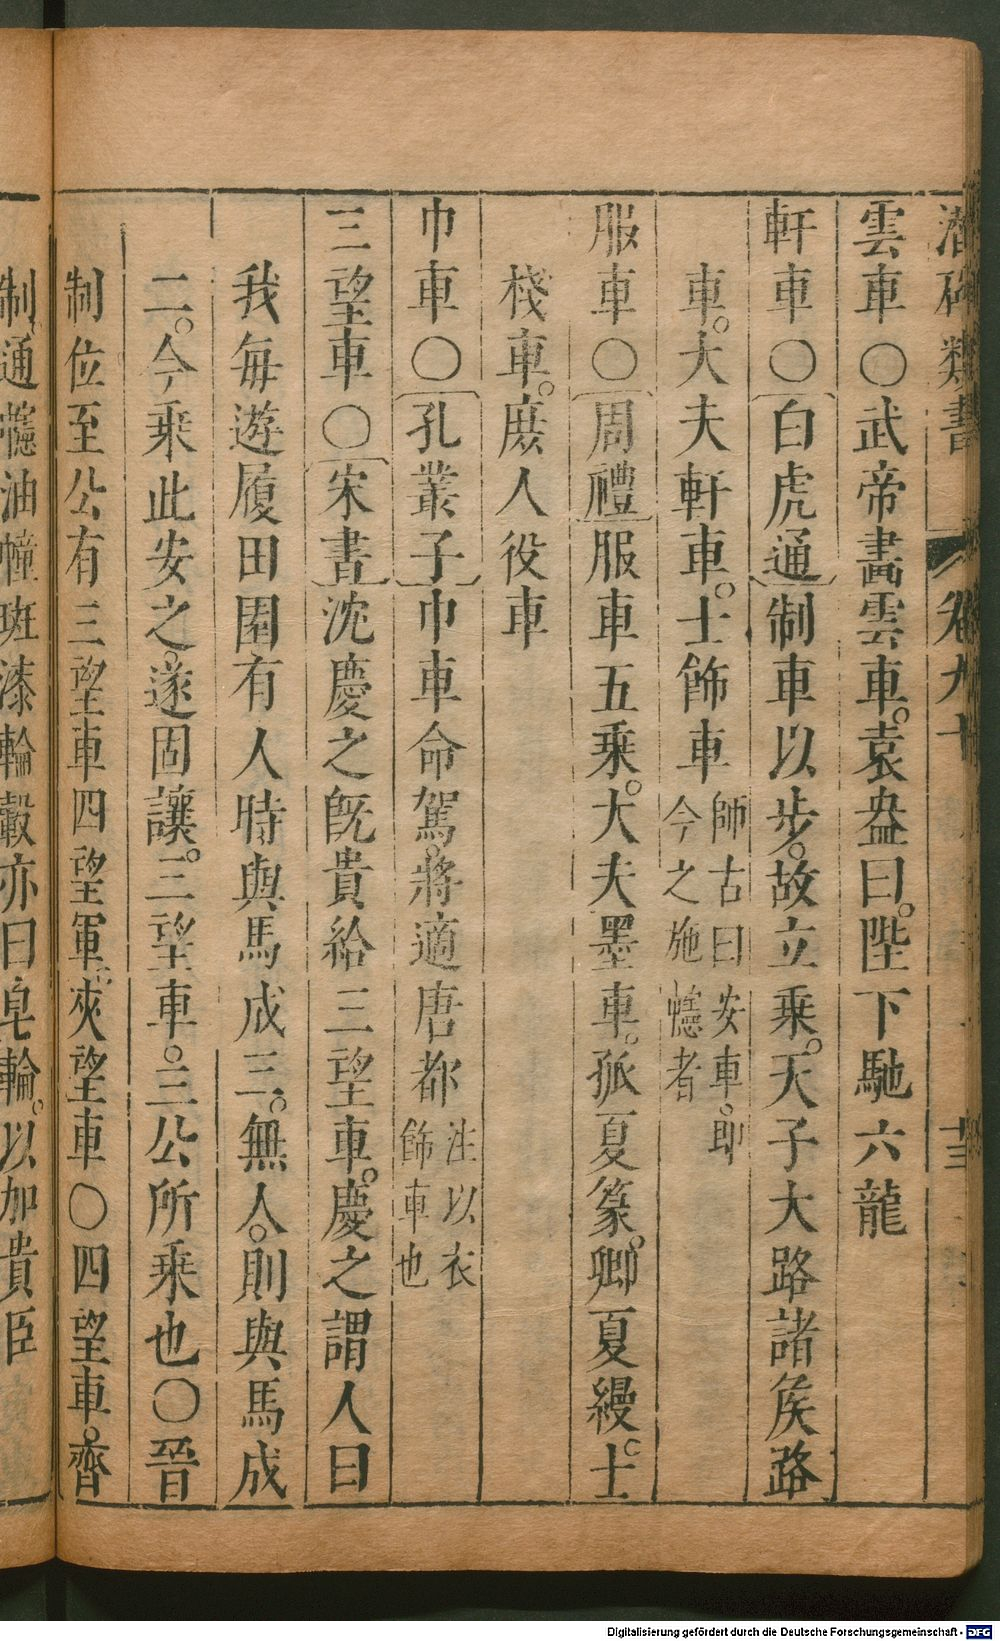 潛確類書 卷九十 十三
雲車○武帝畵雲車。袁盎曰。陛下馳六龍
軒車○白虎通制車以步。故立乘。天子大路諸矦路
車。大夫軒車。士飾車師古曰安車。即今之施幰者
服車○周禮服車五乘。大夫墨車。孤夏篆。卿夏縵。士
棧車。庻人役車
巾車○孔叢子巾車命駕。將適唐都注以衣飾車也
三望車○宋書沈慶之旣貴給三望車。慶之謂人曰
我每遊履田園有人時與馬成三。無人。則與馬成
二。今乘此安之。遂固讓。三望車。三公所乘也○晉
制位至公有三望車四望軍夾望車○四望車。齊
制。通幰油幢班漆輪轂亦曰皂輪。以加貴臣
Digitalisierung gefördert durch die Deutsche Forschungsgemeinschaft - DFG